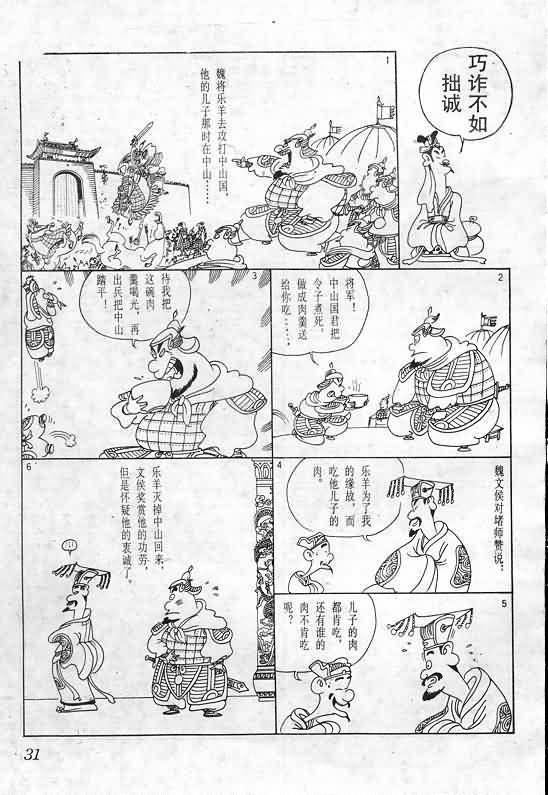 巧诈不如
拙诚
1
魏将乐羊去攻打中山国，
他的儿子那时在中山……
2
将军！
中山国君把
令子煮死，
做成肉羹送
给你吃……
3
待我把
这碗肉
羹喝光，再
出兵把中山
踏平！
4
魏文侯对堵师赞说：
乐羊为了我
的缘故，而
吃他儿子的
肉。
5
儿子的肉
都肯吃，
还有谁的
肉不肯吃
呢？
6
乐羊灭掉中山回来，
文侯奖赏他的功劳，
但是怀疑他的衷诚了。
31